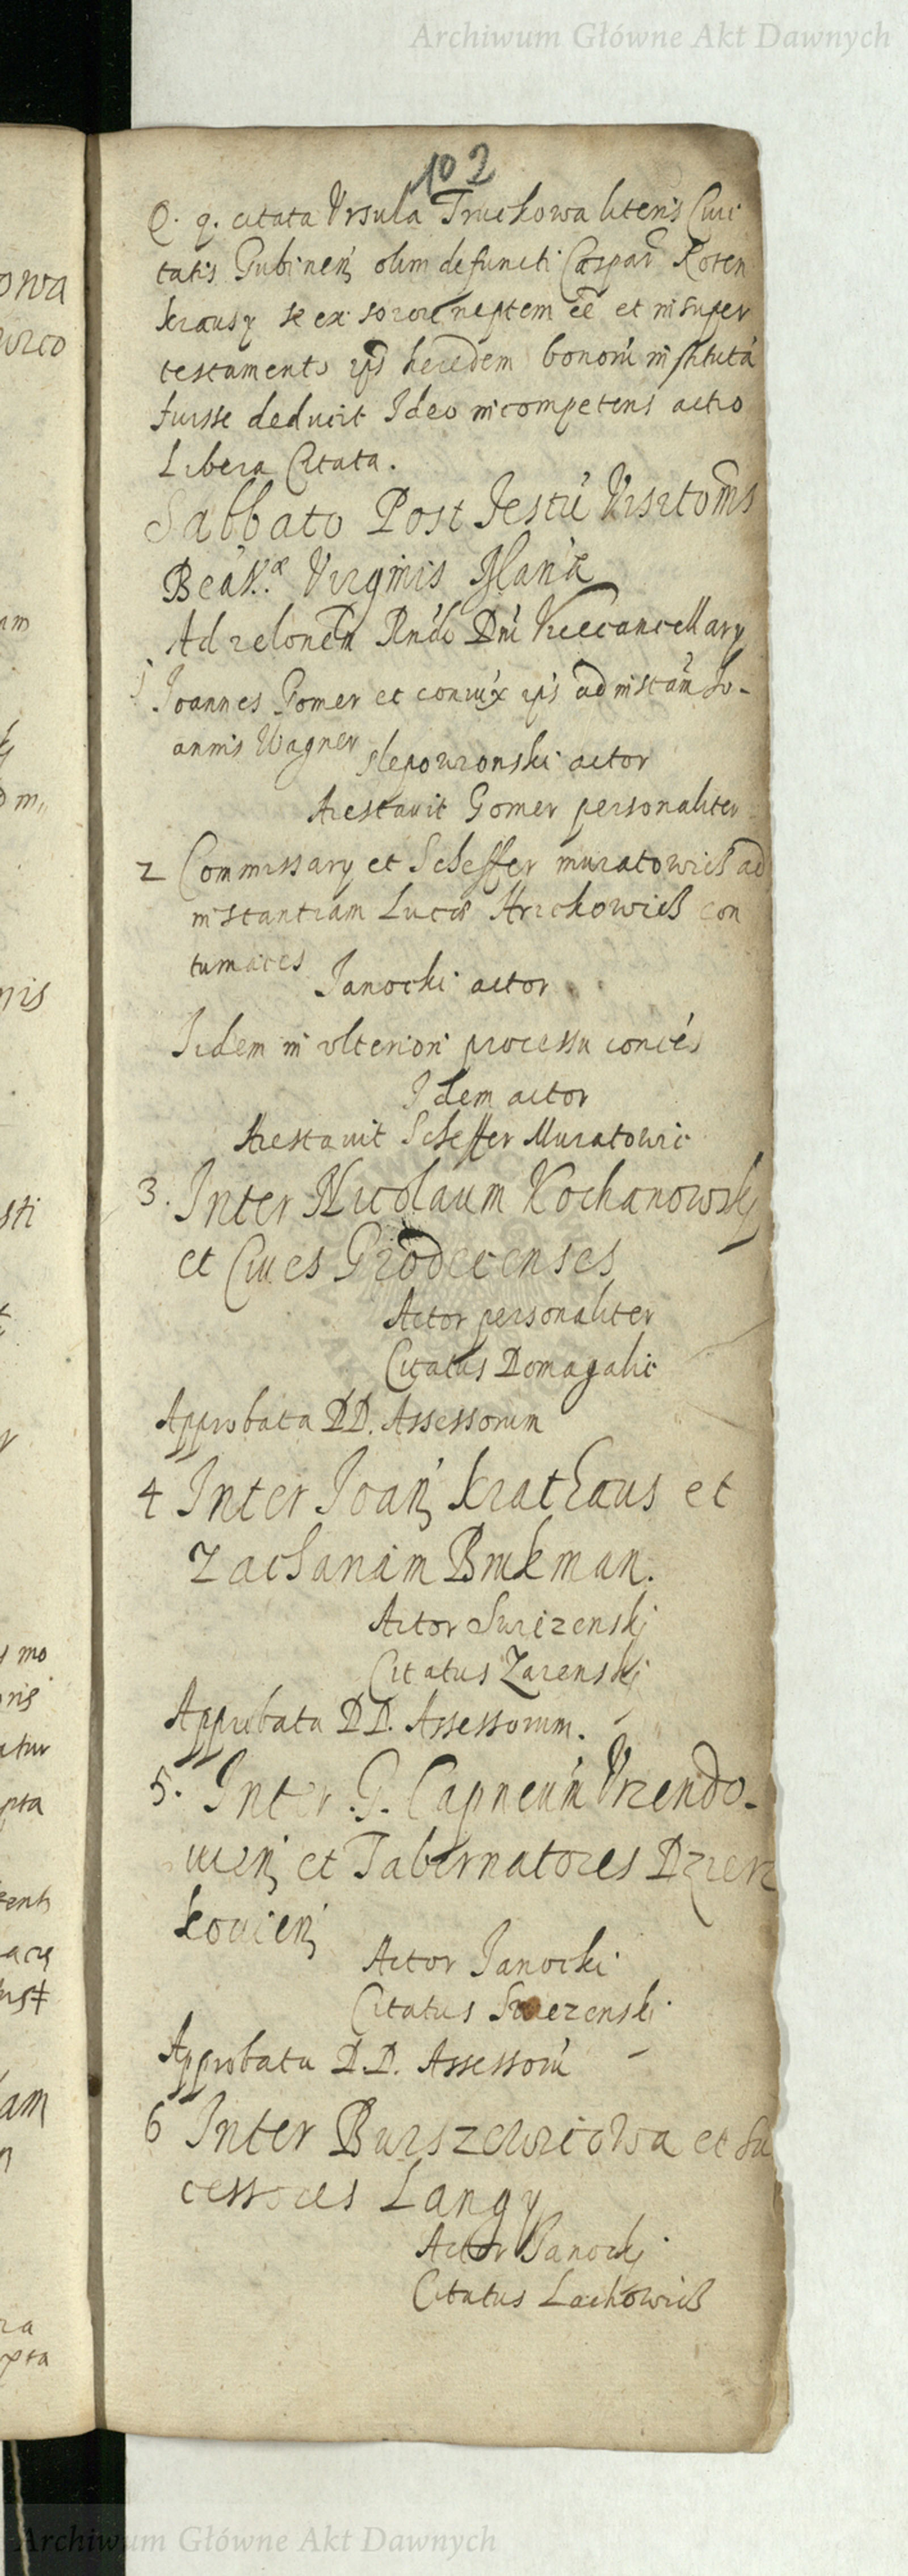 Archiwum Główne Akt Dawnych
102
Q. q. citata Vrsula Truchowa literis Ciui
tatis Gubinen olim defuncti Caspar Rosen
krausz se ex sorore neptem eē et insuper
testamento ipˢ heredem bonorū institutā
fuisse deducit Ideo incompetens actio
Libera Citata.
Sabbato Post Festū Visitomīs
Beātae Virginis Mariæ
Ad relonēm Rndi Dni Vicecancellary
1 Ioannes Gomer et coniūx ipˢ ad instān Io-
annis Wagner
Slepowronski actor
Arestauit Gomer personaliter
2 Commissary et Scheffer muratowicz ad
instantiam Lucæ Hrickowicz con
tumaces
Janocki actor
Iidem in vlteriori processu
Idem actor
Arestauit Scheffer Muratowic
3. Inter Nicolaum Kochanowskj
et Ciues Grodecenses
Actor personaliter
Citatus Domagalic
Approbata DD. Assessorum
4 Inter Joan Krathaus et
Zachariam Brukman.
Actor Swiezenskj
Citatus Zarenskj
Approbata DD. Assessorum.
5. Inter G. Capneum Vrzendo-
uien et Tabernatores Dzierz
kouien
Actor Janocki
Citatus Swiezenski
Approbata D.D. Assessorū
6 Inter Burszewicowa et Su
cessores Langy
Actor Janockj
Citatus Lachowicz
Archiwum Główne Akt Dawnych